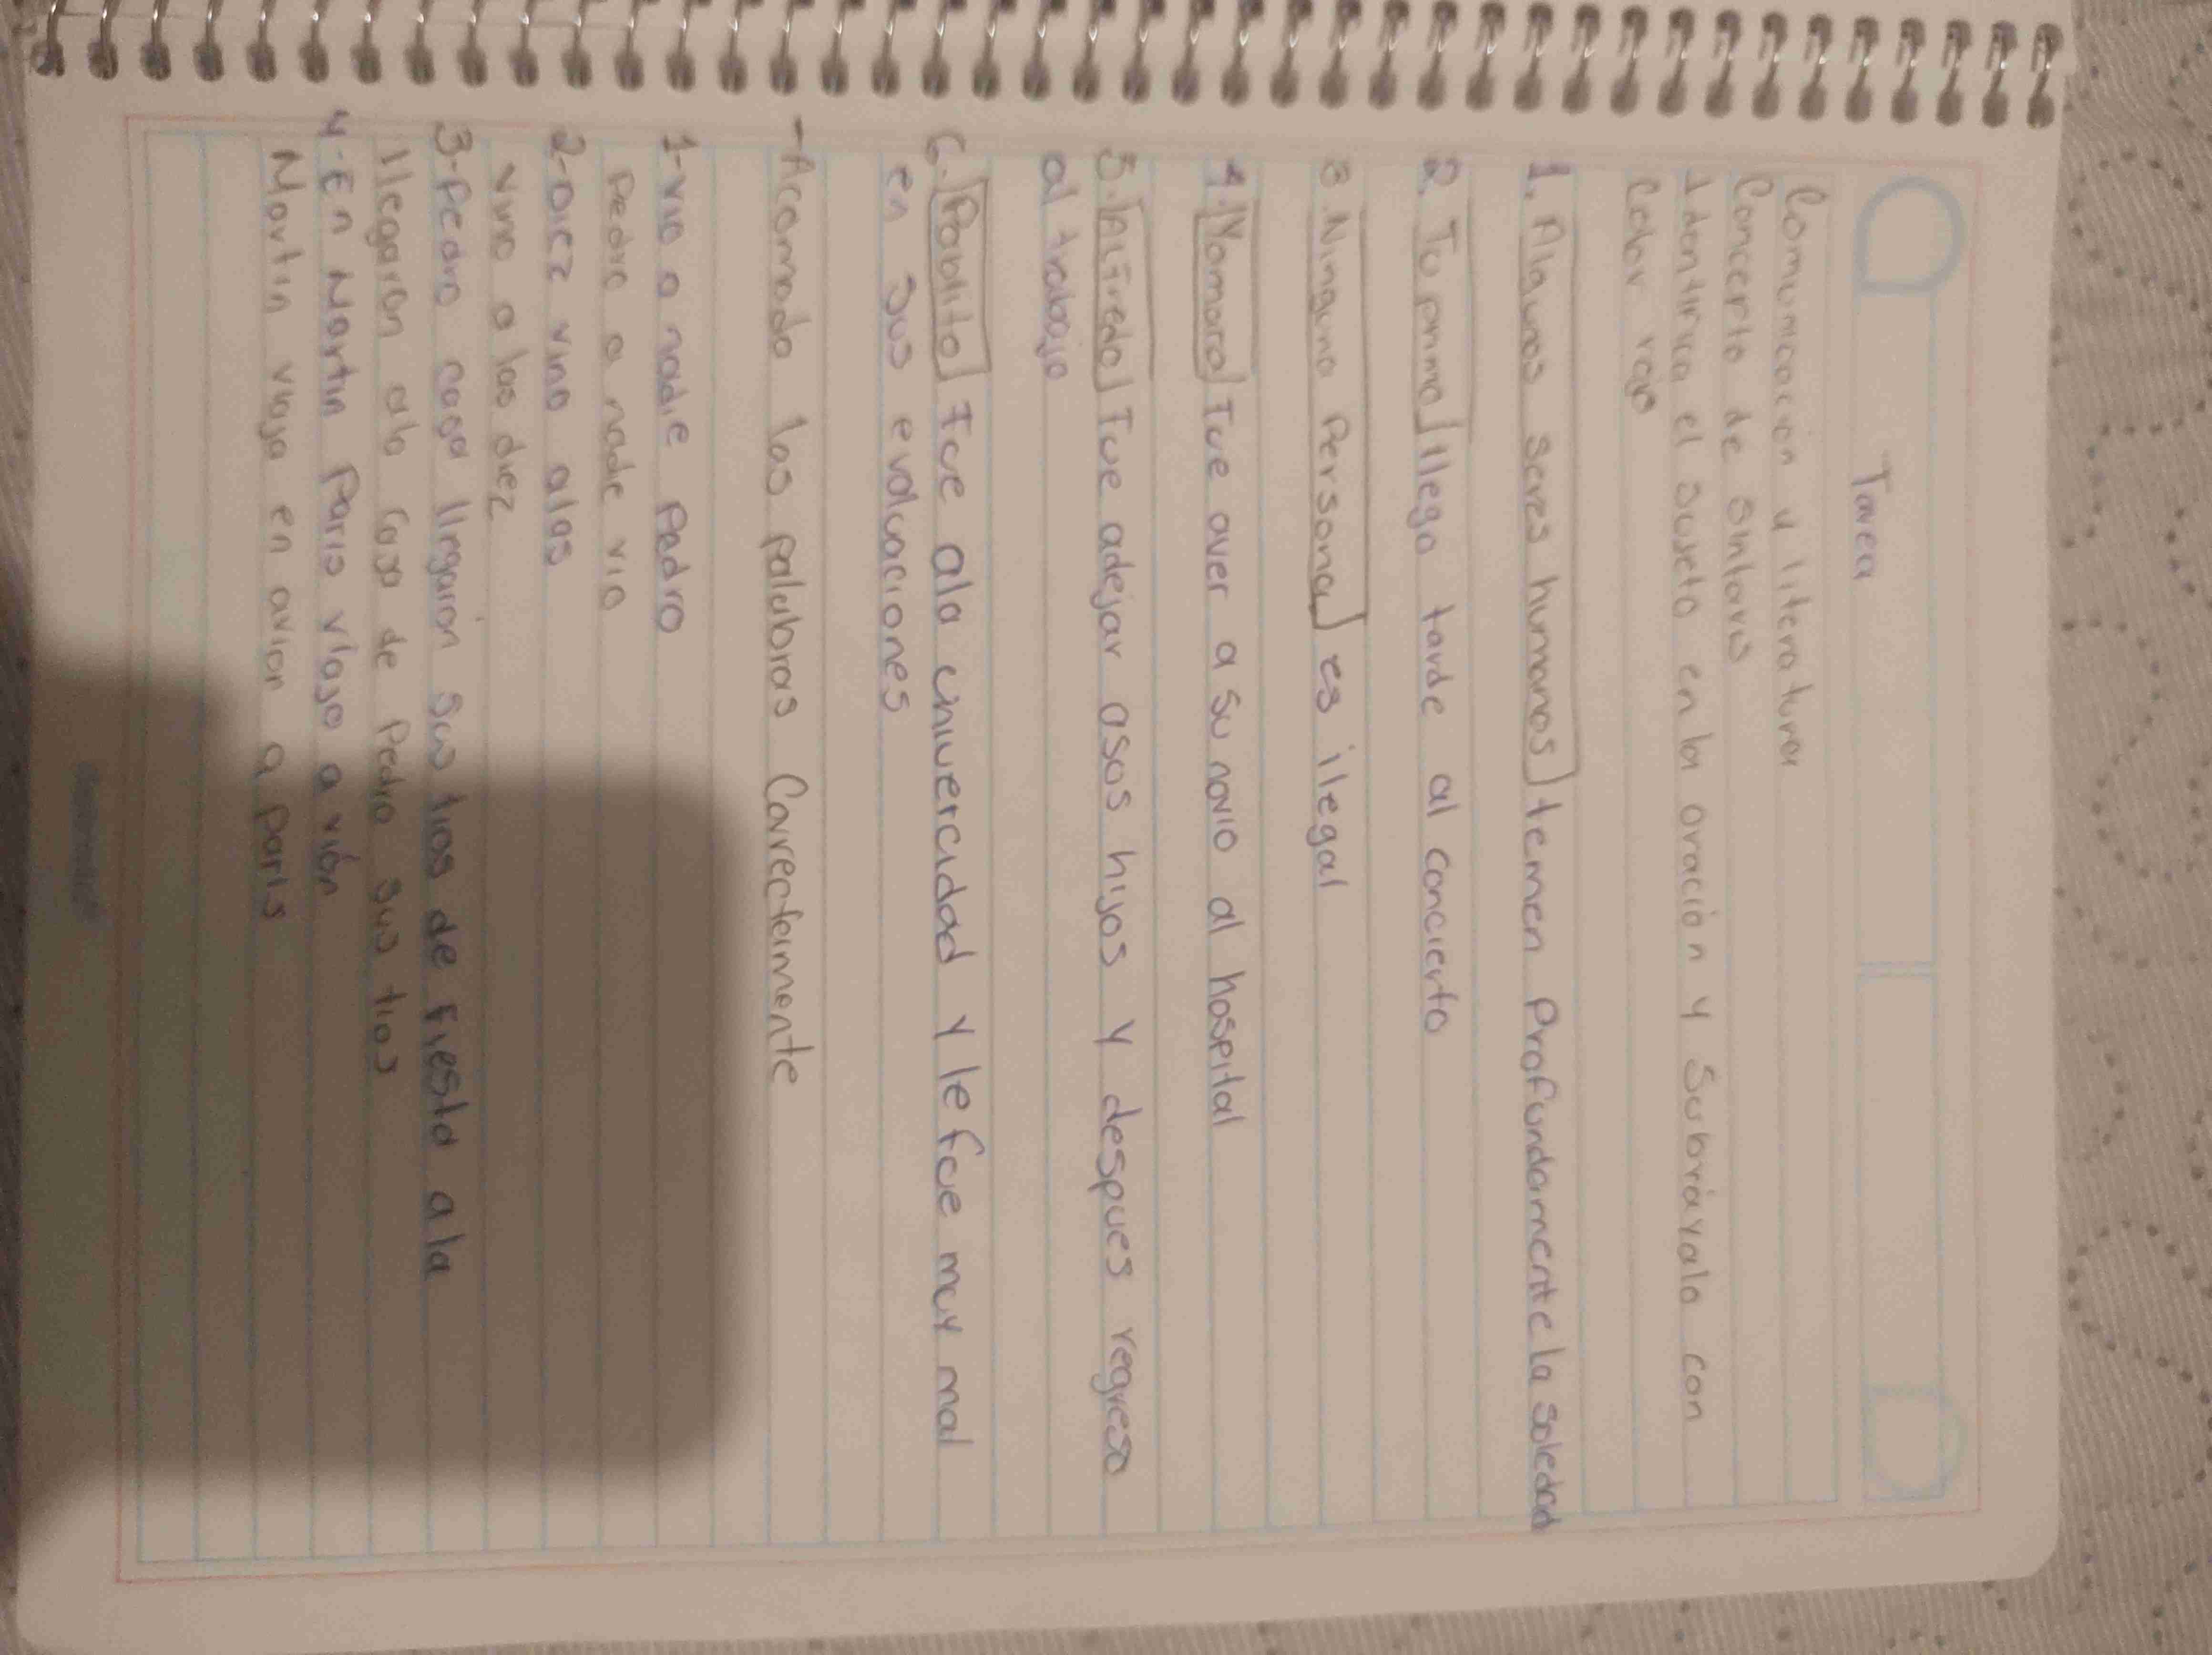 Tarea
Comunicación y literatura
Concepto de sintaxis
Identifica el sujeto en la oración y Subráyalo con
Color rojo
1. Algunos seres humanos temen Profundamente la soledad
2. Tu primo llego tarde al concierto
3. Ninguna Persona es ilegal
4. Yomara fue aver a su novio al hospital
5. Alfredo fue adejar asos hijos y despues regreso
al trabajo
6. Pablito fue ala univercidad y le fue muy mal
en sus evaluaciones
- Acomodo las palabras Correctamente
1- vio a nadie Pedro
Pedro a nadie vio
2- Diez vino alas
vino a las diez
3- Pedro casa llegaron sus tios de fiesta a la
llegaron ala casa de Pedro sus tios
4- En Martin Paris viajo a vión
Martin viajo en avion a paris